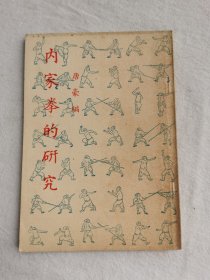 内家拳的研究
唐豪编